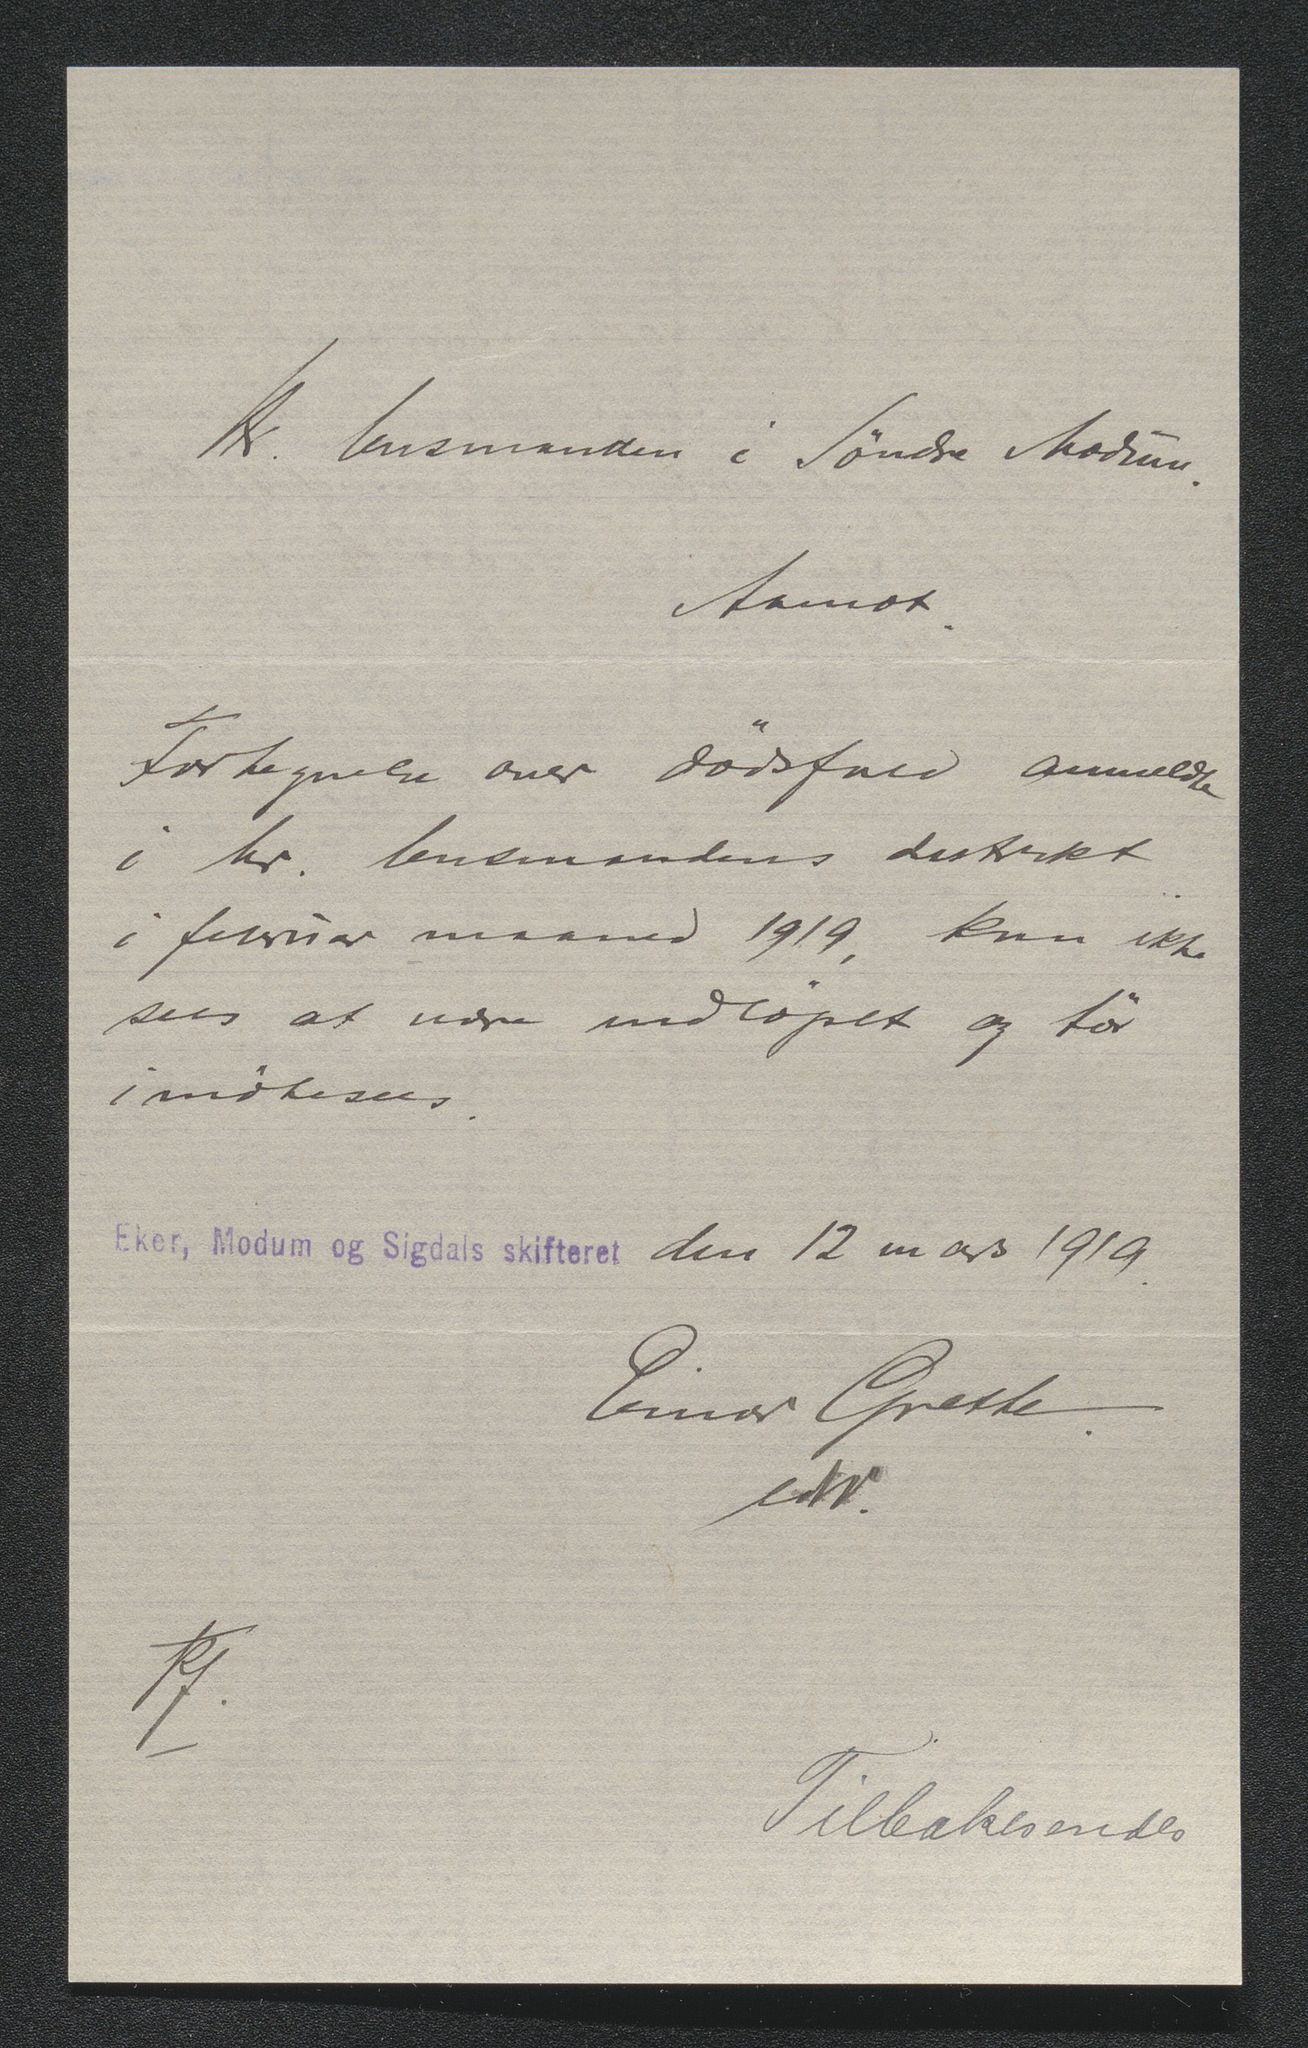 Hr. lensmanden i Söndre Modum.
Aamot.
Fortegnelse over dödsfald anmeldte
i hr. lensmandens distrikt
i februar maaned 1919, kan ikke
sees at være indlöpet og tör
imötesees.
Eker, Modum og Sigdals skifteret den 12 mars 1919.
Einar Grette.
Tilbakesendes